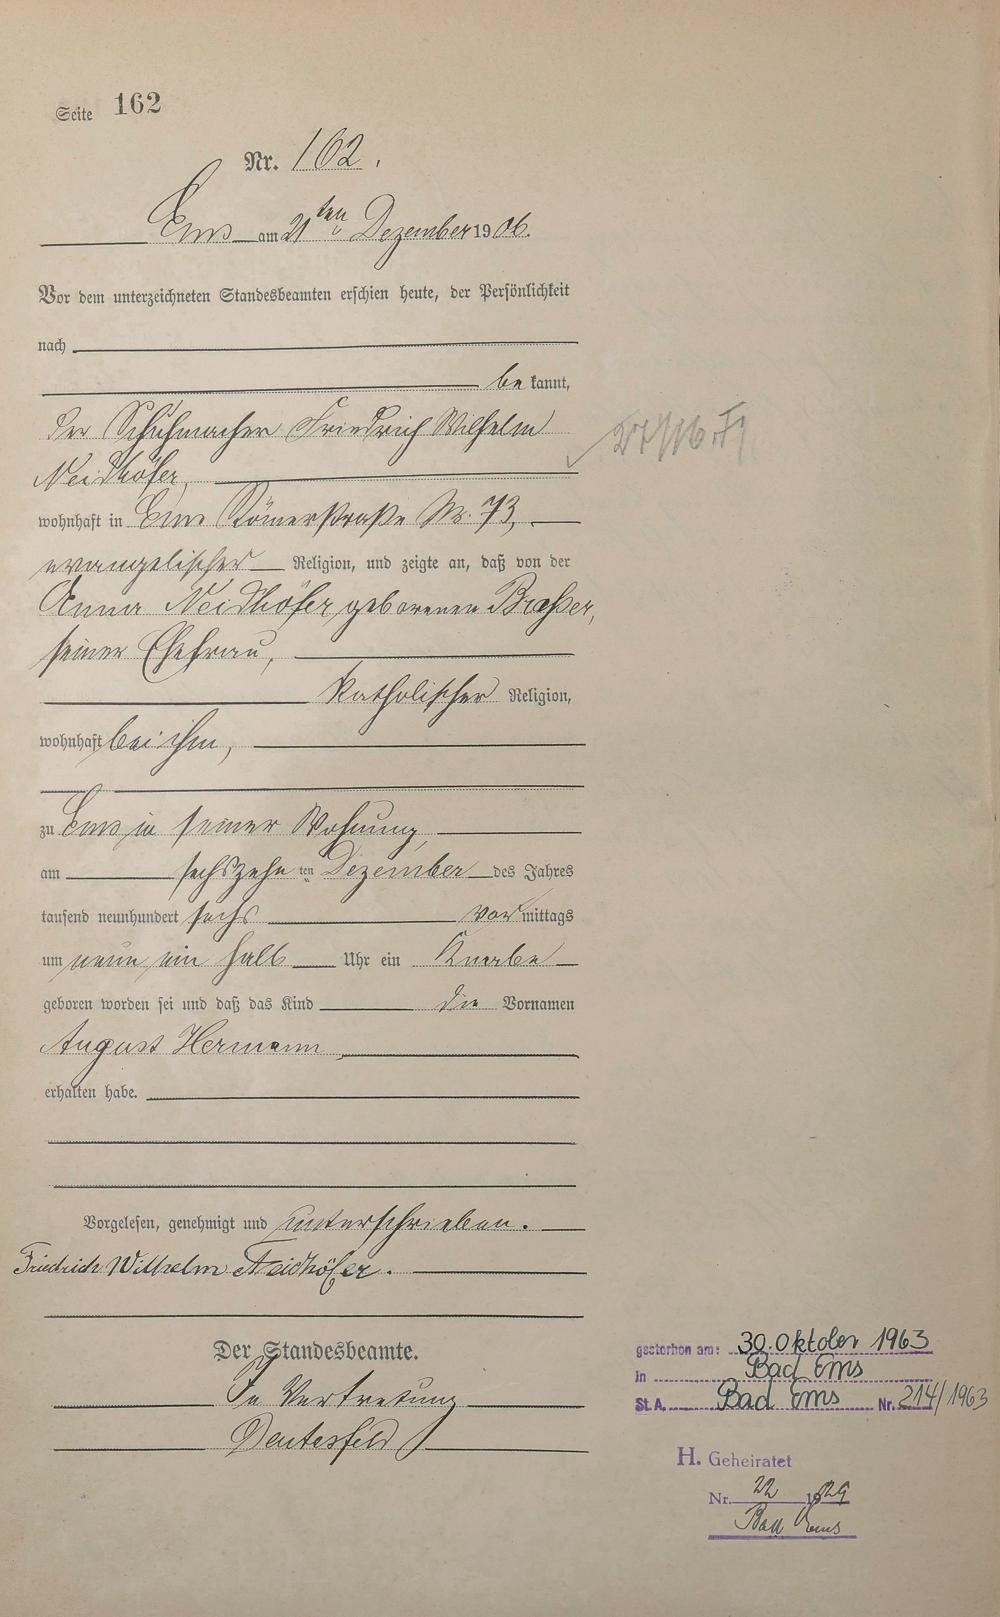 Seite 162
Nr. 162.
Ems am 21ten Dezember 1906.
Vor dem unterzeichneten Standesbeamten erschien heute, der Persönlichkeit
nach
be kannt,
der Schuhmacher Friedrich Wilhelm
Neidhöfer,
wohnhaft in Ems Römerstraße Nr. 73,
evangelischer Religion, und zeigte an, daß von der
Anna Neidhöfer geborenen Braßer,
seiner Ehefrau,
katholischer Religion,
wohnhaft bei ihm,
zu Ems in seiner Wohnung,
am sechszehn ten Dezember des Jahres
tausend neunhundert sechs vor mittags
um neun ein halb Uhr ein Knabe
geboren worden sei und daß das Kind die Vornamen
August Hermann
erhalten habe.
Vorgelesen, genehmigt und unterschrieben.
Friedrich Wilhelm Neidhöfer.
Der Standesbeamte.
In Vertretung
gestorben am: 30. Oktober 1963
in Bad Ems
St.A. Bad Ems Nr. 214/1963
H. Geheiratet
Nr. 22 1929
Bad Ems